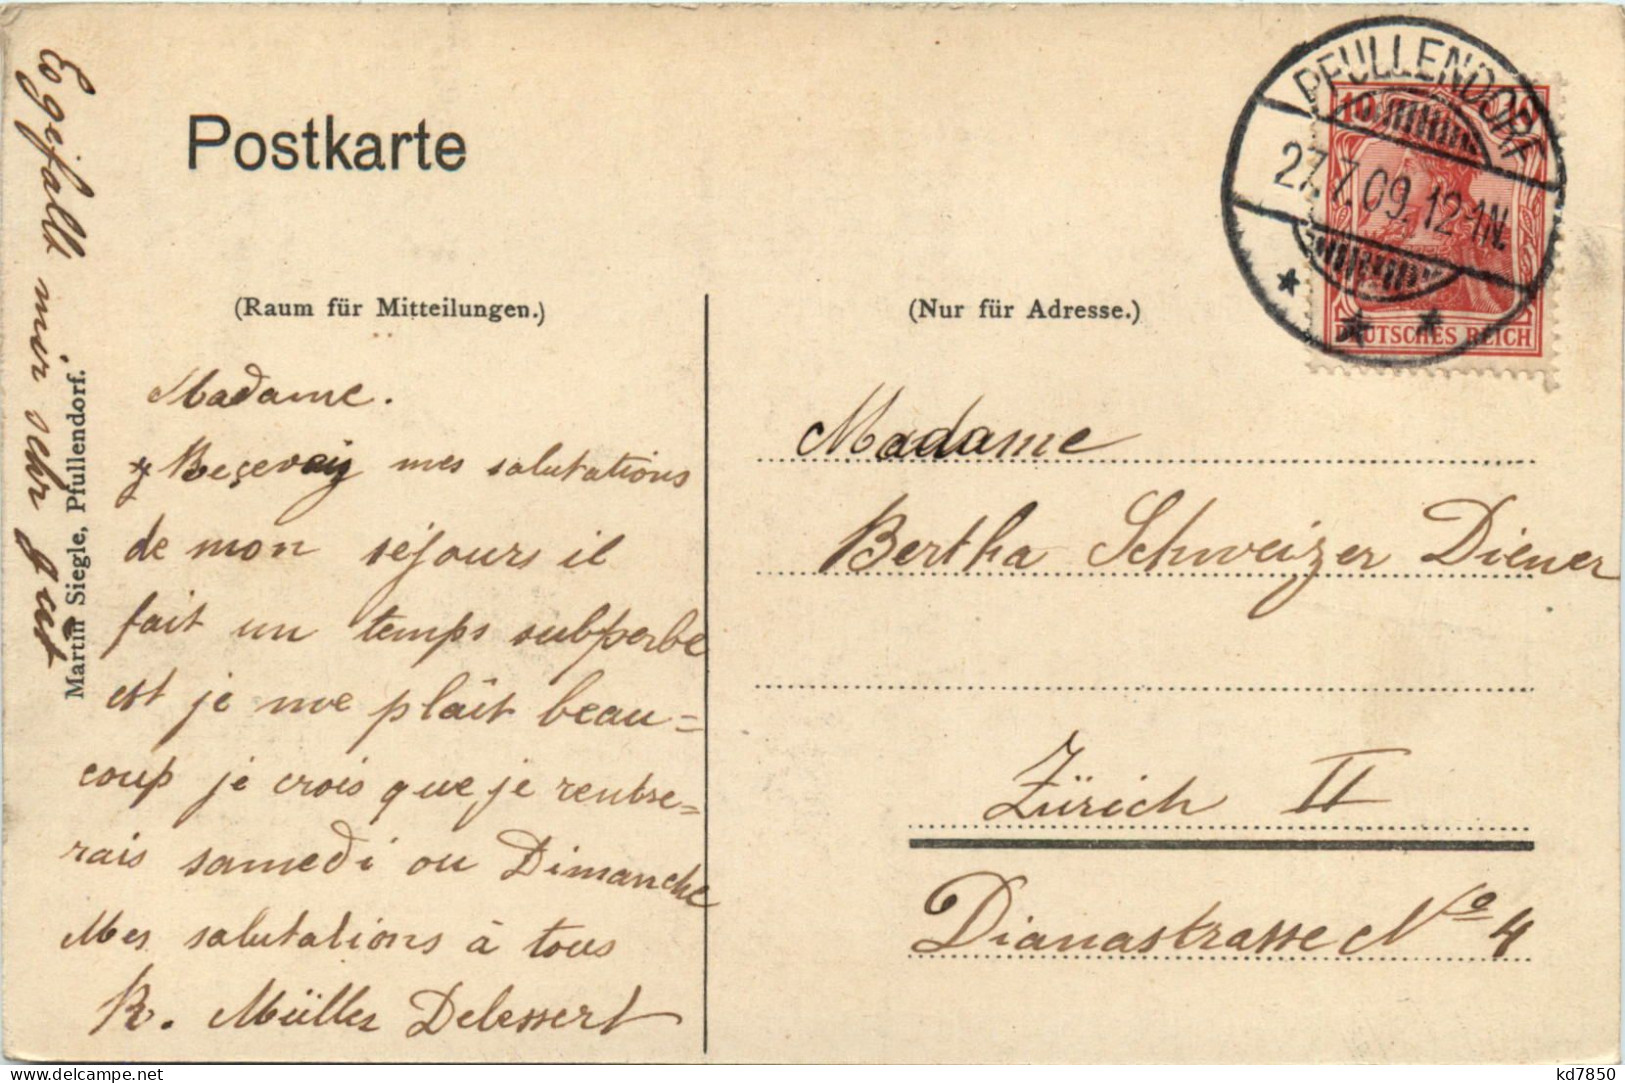 Postkarte
(Raum für Mitteilungen.)
(Nur für Adresse.)
PFULLENDORF
27.7.09. 12-1N.
10 10
DEUTSCHES REICH
Es gefällt mir sehr gut
Martin Siegle, Pfullendorf.
Madame.
mes salutations
de mon séjours il
fait un temps subperbe
est je me plâit beau=
coup je crois que je rentre=
rais samedi ou Dimanche
Mes salutations à tous
R. Müller Delessert
Madame
Bertha Schweizer Diener
Zürich II
Dianastrasse No 4
kd7850